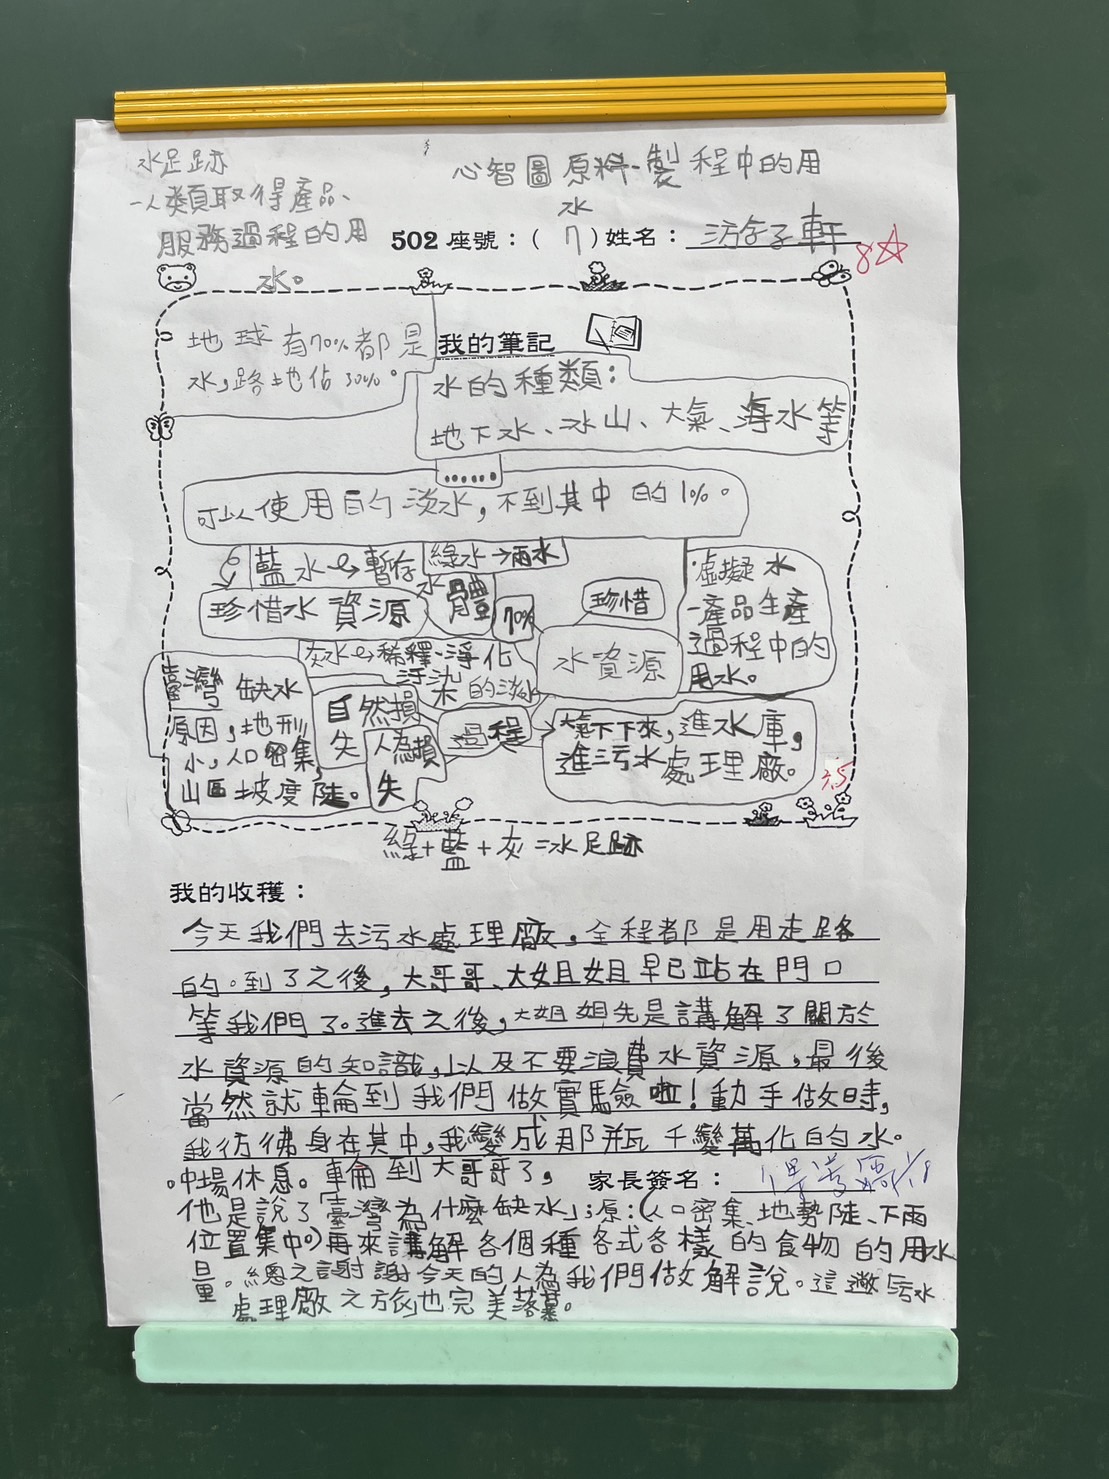 水足跡
-人類取得產品、
服務過程的用
水。
心智圖 原料-製程中的用
水
502 座號：( 7 ) 姓名：軒
8☆
地球有70%都是
水，路地佔30%。
我的筆記
水的種類：
地下水、冰山、大氣、海水等
......
可以使用的淡水，不到其中的1%。
藍水→暫存
水體
綠水→雨水
70%
珍惜水資源
珍惜
水資源
虛擬水
-產品生產
過程中的
用水。
灰水→稀釋-淨化
污染的淡水
臺灣缺水
原因，地形
小，人口密集，
山區坡度陡。
自然損
失
人為損
失
過程
大氣下下來，進水庫，
進污水處理廠。
3.5
綠+藍+灰=水足跡
我的收穫：
今天我們去污水處理廠，全程都是用走路
的。到了之後，大哥哥、大姐姐早已站在門口
等我們了。進去之後，大姐姐先是講解了關於
水資源的知識，以及不要浪費水資源，最後
當然就輪到我們做實驗啦！動手做時，
我彷彿身在其中，我變成那瓶千變萬化的水。
中場休息。輪到大哥哥了，
家長簽名：
他是說了「臺灣為什麼缺水」；原：(人口密集、地勢陡、下雨
位置集中。)再來講解各個種各式各樣的食物的用水
量。總之謝謝今天的人為我們做解說。這趟污水
處理廠之旅也完美落幕。